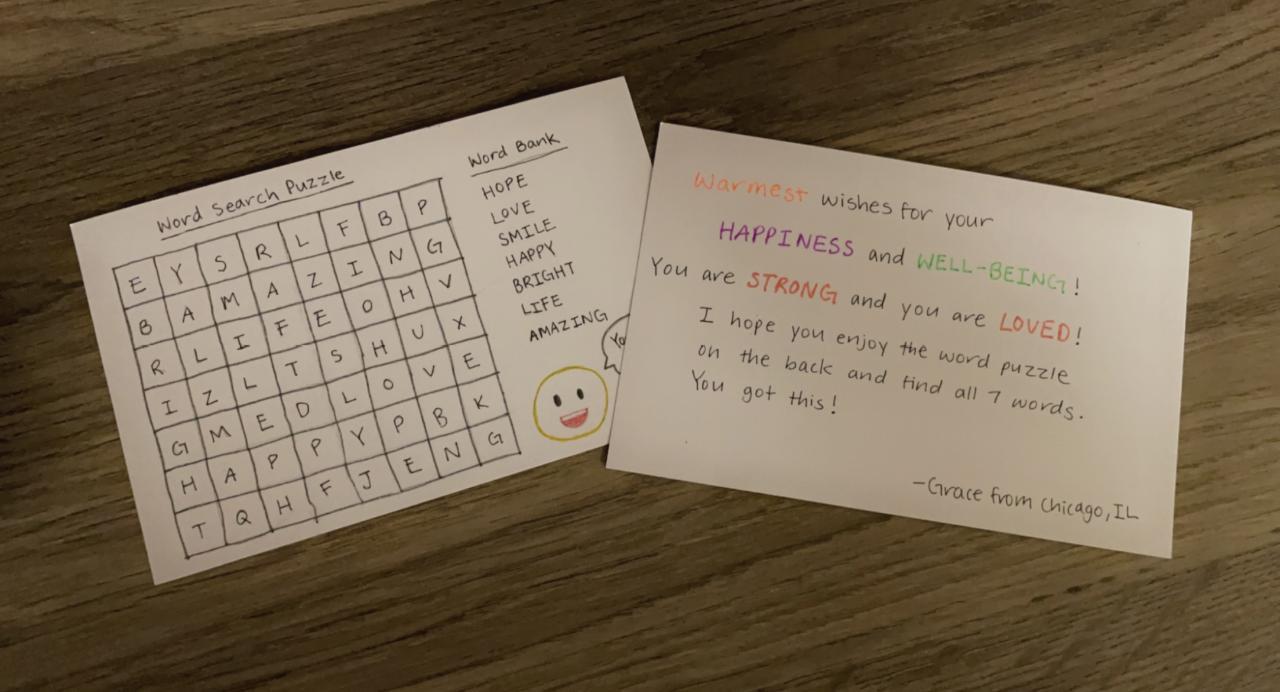 Word Search Puzzle
E Y S R L F B P
B A M A Z I N G
R L I F E O H V
I Z L T S H U X
G M E D L O V E
H A P P Y P B K
T Q H F J E N G
Word Bank
HOPE
LOVE
SMILE
HAPPY
BRIGHT
LIFE
AMAZING
Yo
Warmest wishes for your
HAPPINESS and WELL-BEING!
You are STRONG and you are LOVED!
I hope you enjoy the word puzzle
on the back and find all 7 words.
You got this!
-Grace from Chicago, IL